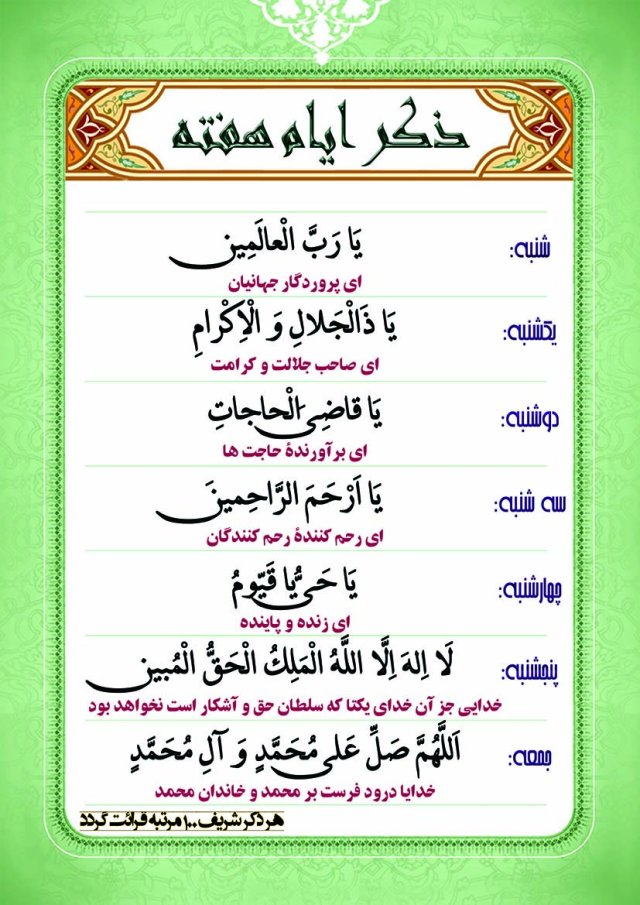 ذکر ایام هفته
شنبه: یَا رَبَّ الْعالَمِین
ای پروردگار جهانیان
یکشنبه: یَا ذَالْجَلالِ وَ الْاِکْرامِ
ای صاحب جلالت و کرامت
دوشنبه: یَا قاضِیَ الْحاجاتِ
ای برآورندهٔ حاجت ها
سه شنبه: یَا اَرْحَمَ الرَّاحِمینَ
ای رحم کنندهٔ رحم کنندگان
چهارشنبه: یَا حَیُّ یا قَیّومُ
ای زنده و پاینده
پنجشنبه: لَا اِلهَ اِلَّا اللَّهُ الْمَلِکُ الْحَقُّ الْمُبین
خدایی جز آن خدای یکتا که سلطان حق و آشکار است نخواهد بود
جمعه: اَللَّهُمَّ صَلِّ عَلی مُحَمَّدٍ وَ آلِ مُحَمَّدٍ
خدایا درود فرست بر محمد و خاندان محمد
هر ذکر شریف ۱۰۰ مرتبه قرائت گردد